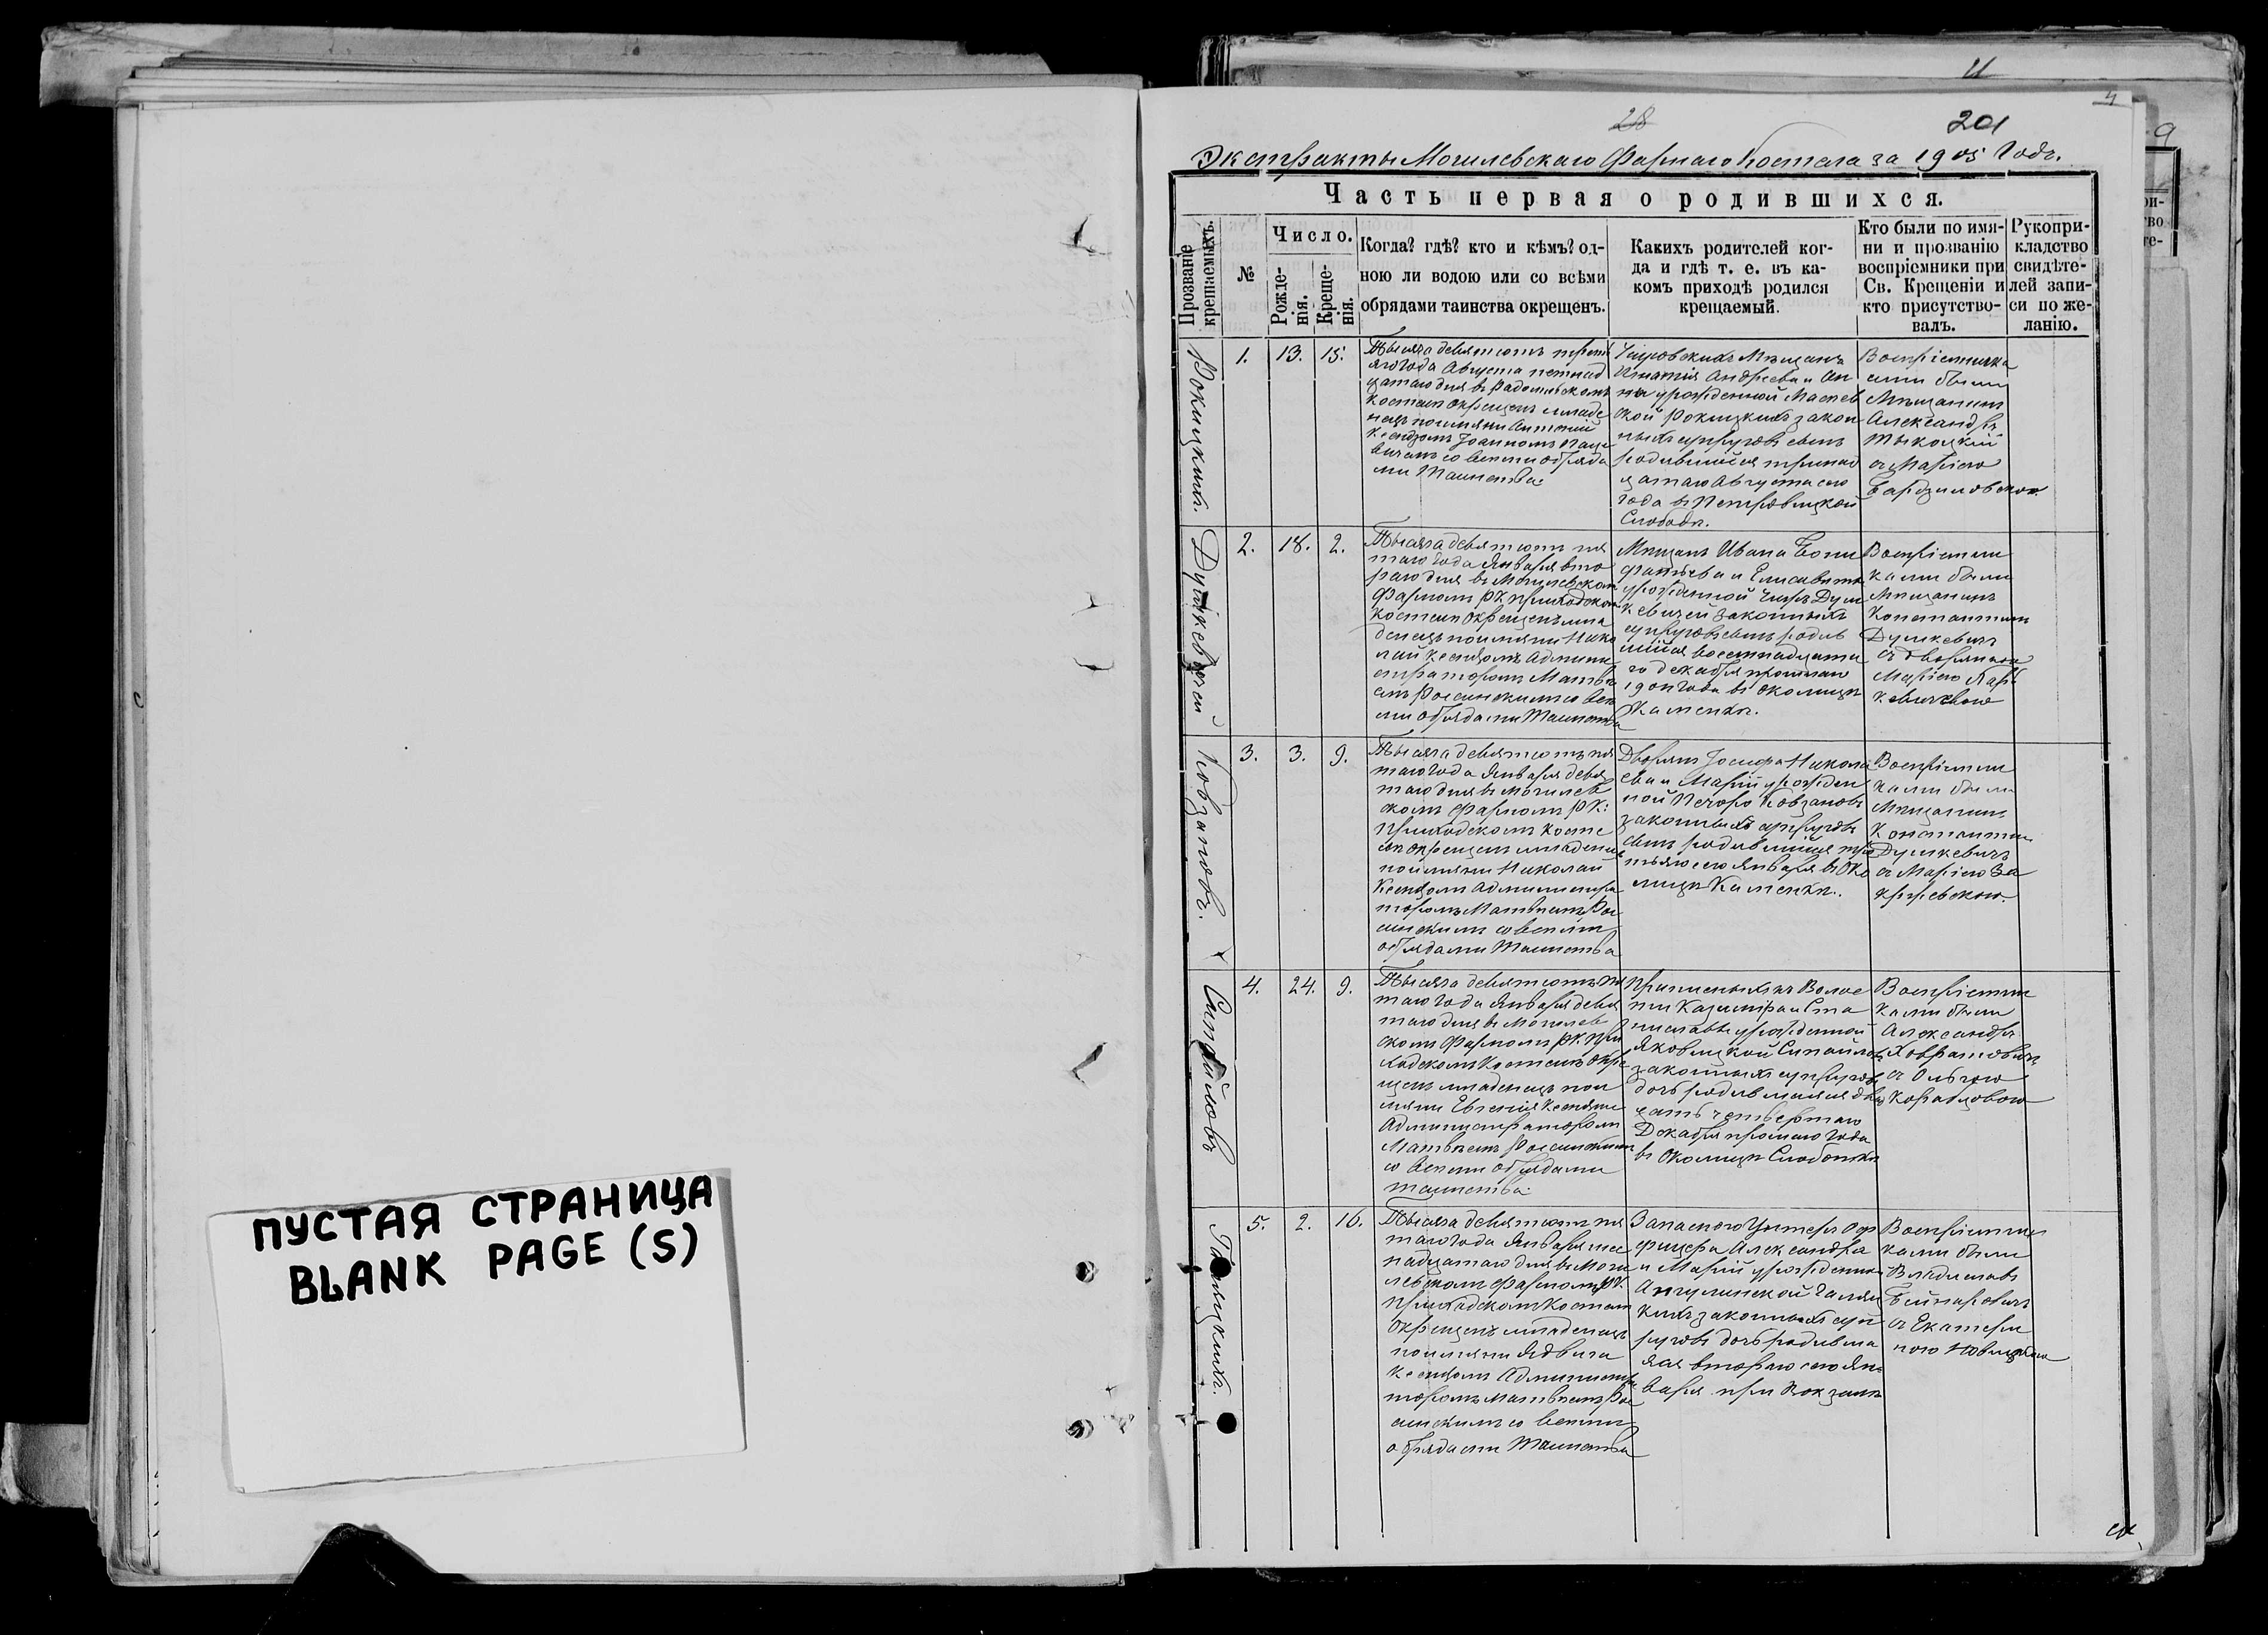 ПУСТАЯ СТРАНИЦА
BLANK PAGE (S)
28
201
Экстракты Могилевскаго Фарнаго Костела за 1905 Годъ.
Часть первая о родившихся.
Прозваніе крещаемыхъ.
№
Число.
Рожде-
нія.
Креще-
нія.
Когда? гдѣ? кто и кѣмъ? од-
ною ли водою или со всѣми
обрядами таинства окрещенъ.
Какихъ родителей ког-
да и гдѣ т. е. въ ка-
комъ приходѣ родился
крещаемый.
Кто были по имя-
ни и прозванію
воспріемники при
Св. Крещеніи и
кто присутство-
валъ.
Рукопри-
кладство
свидѣте-
лей запи-
си по же-
ланію.
Рокицкихъ.
1.
13.
15.
Тысяча девятсотъ треть
яго года Августа пятнад
цатаго дня въ Радомльскомъ
Костелѣ окрещенъ младе
нецъ по имяни Антоній
Ксендзомъ Іоанномъ
со всѣми обряда
ми Таинства
Мѣщанъ
Игнатія Андреева и Ан
ны урожденной
Рокицкихъ закон
ныхъ супруговъ сынъ
родившійся тринад
цатаго Августа сего
года въ Петровицкой
Слободѣ.
Воспріемника
ми были
Мѣщанинъ
Александръ
Тыкоцкій
съ Маріею
2.
18.
2.
Тысяча девятсотъ пя
таго года Января вто
раго дня въ Могилевскомъ
Фарномъ РК приходскомъ
Костелѣ окрещенъ мла
денецъ по имяни Нико
лай Ксендзомъ Админи
страторомъ Матвѣ
емъ со всѣ
ми обрядами Таинства
Мѣщанъ Ивана Бони
фатьева и Елисаветы
урожденной Душ
кевичей законныхъ
супруговъ сынъ родив
шійся восемнадцата
го декабря прошлаго
1904 года въ околицѣ
Каменкѣ.
Воспріемни
ками были
Мѣщанинъ
Константинъ
Душкевичъ
съ дворянкою
Маріею
Душкевичей
Ковзановъ.
3.
3.
9.
Тысяча девятсотъ пя
таго года Января девя
таго дня въ Могилев
скомъ Фарномъ РК:
Приходскомъ Косте
лѣ окрещенъ младенецъ
по имяни Николай
Ксендзомъ Администра
торомъ Матвѣемъ
со всѣми
обрядами Таинства
Дворянъ Іосифа Никола
ева и Маріи урожден
ной Ковзановъ
законныхъ супруговъ
сынъ родившійся тре
тьяго сего Января въ Око
лицѣ Каменкѣ.
Воспріемни
ками были
Мѣщанинъ
Константинъ
Душкевичъ
съ Маріею За
кржевскою.
Сипайловъ
4.
24.
9.
Тысяча девятсотъ пя
таго года Января девя
таго дня въ Могилев
скомъ Фарномъ РК. При
ходскомъ Костелѣ окре
щенъ младенецъ по и
мяни Евгенія Ксендзомъ
Администраторомъ
Матвѣемъ
со всѣми обрядами
таинства.
къ Волос
ти Казиміра и Ста
ниславы урожденной
Яковицкой Сипайловъ
законныхъ супруговъ
дочь родившаяся двад
цать четвертаго
Декабря прошлаго года
въ Околицѣ Слободкѣ
Воспріемни
ками были
Александръ
съ Ольгою
5.
2.
16.
Тысяча девятсотъ пя
таго года Января шес
надцатаго дня въ Моги
левскомъ Фарномъ РК.
Приходскомъ Костелѣ
окрещенъ младенецъ
по имяни Ядвига
Ксендзомъ Администра
торомъ Матвѣемъ
со всѣми
обрядами Таинства
Запаснаго Унтеръ Оф
фицера Александра
и Маріи урожденной
законныхъ суп
руговъ дочь родивша
яся втораго сего Ян
варя при Вокзалѣ
Воспріемни
ками были
Владиславъ
съ Екатери
ною Новицкою